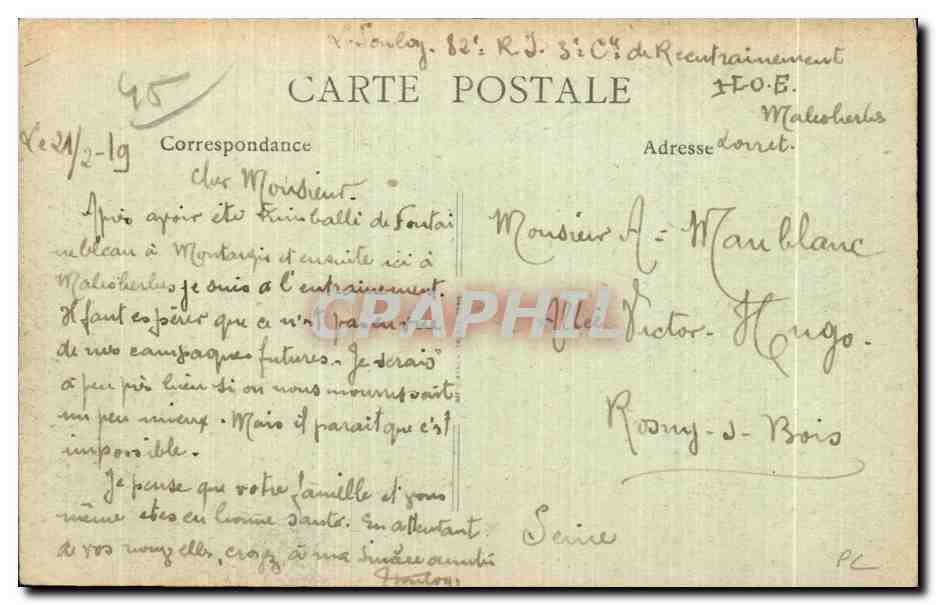 L. Fouloy. 82e R.I. 3e Cie de Reentrainement
H.O.E.
Malesherbes
Loiret.
45
CARTE POSTALE
Le 21/2-19
Correspondance
Adresse
Cher Monsieur.
Après avoir été trimballé de Fontai
nebleau à Montargis et ensuite ici à
Malesherbes je suis à l'entrainement.
Il faut espérer que ce n'est pas en vue
de nos campagnes futures. Je serais
à peu près bien si on nous nourrissait
un peu mieux. Mais il parait que c'est
impossible.
Je pense que votre famille et vous
même etes en bonne santé. En attentant
de vos nouvelles, croyez à ma sincère amitié
Fouloy
Monsieur A. Maublanc
Allée Victor-Hugo.
Rosny-s-Bois
Seine
PL
CRAPHIL